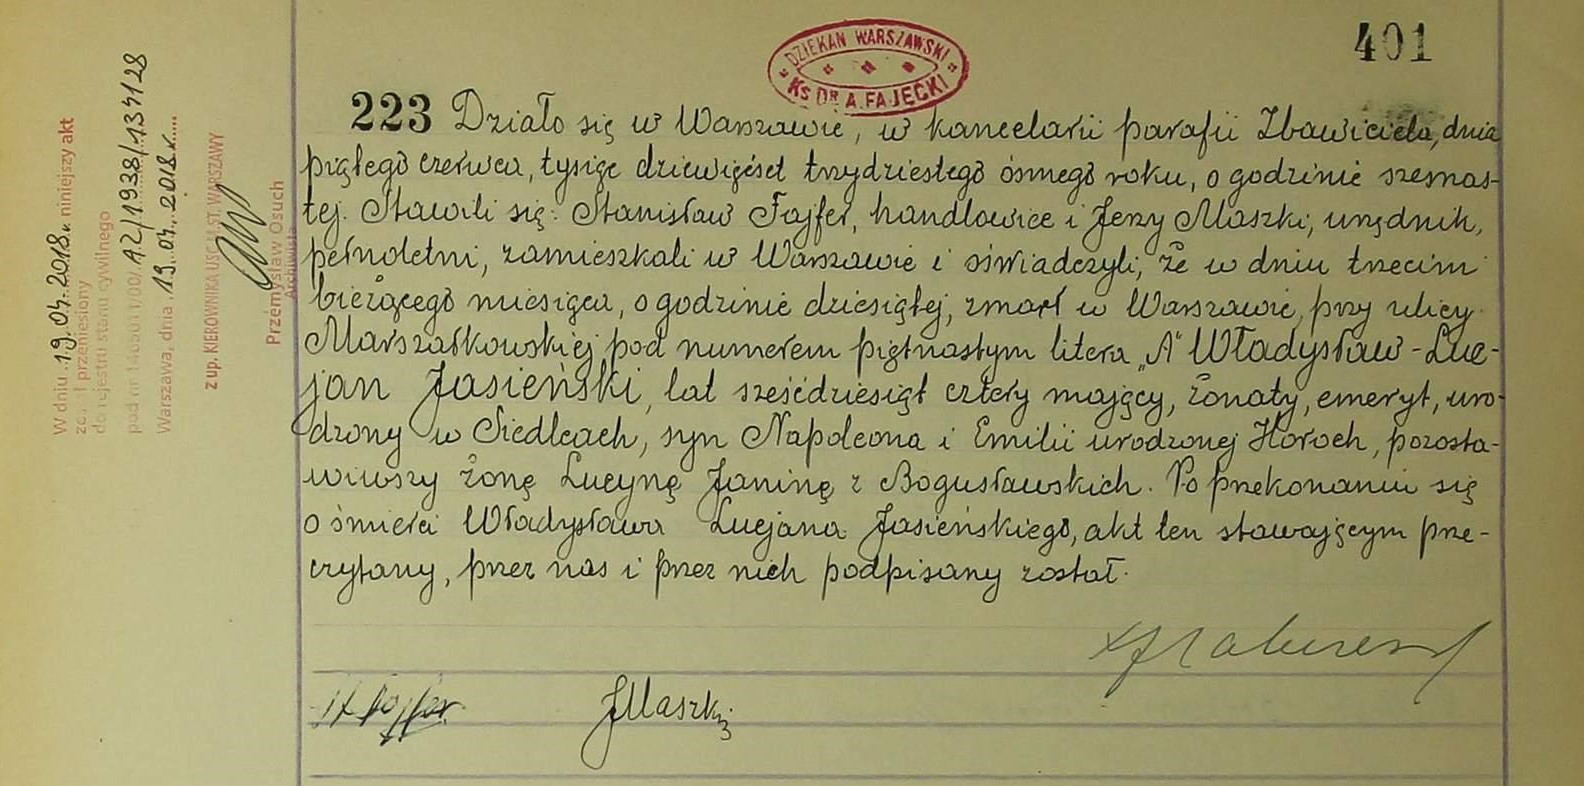 401
DZIEKAN WARSZAWSKI
Ks DR A. FAJĘCKI
223 Działo się w Warszawie, w kancelarii parafii Zbawiciela, dnia
piątego czerwca, tysiąc dziewięćset trzydziestego ósmego roku, o godzinie szesnas-
tej. Stawili się: Stanisław Fajfer, handlowiec i Jerzy Maszki, urzędnik,
pełnoletni, zamieszkali w Warszawie i oświadczyli, że w dniu trzecim
bieżącego miesiąca, o godzinie dziesiątej, zmarł w Warszawie, przy ulicy
Marszałkowskiej pod numerem piętnastym litera „A" Władysław-Luc-
jan Jasieński, lat sześćdziesiąt cztery mający, żonaty, emeryt, uro-
dzony w Siedlcach, syn Napoleona i Emilii urodzonej Horoch, pozosta-
wiwszy żonę Lucynę Janinę z Bogusławskich. Po przekonaniu się
o śmierci Władysława Lucjana Jasieńskiego, akt ten stawającym prze-
czytany, przez nas i przez nich podpisany został.
St Fajfer JMaszki
W dniu 19.04.2018 r. niniejszy akt
został przeniesiony
do rejestru stanu cywilnego
pod nr 1465011/00/AZ/1938/134128
Warszawa, dnia 19.04.2018 r.
z up. KIEROWNIKA USC M.ST. WARSZAWY
Przemysław Osuch
Archiwista